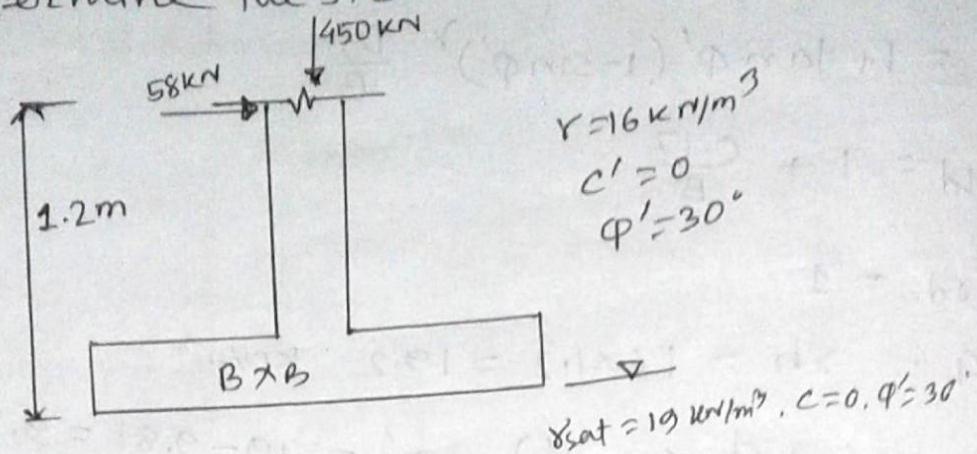 450 KN
58KN
γ=16 KN/m³
c' = 0
φ'=30°
1.2m
B×B
γsat = 19 kN/m³, C=0, φ'=30°